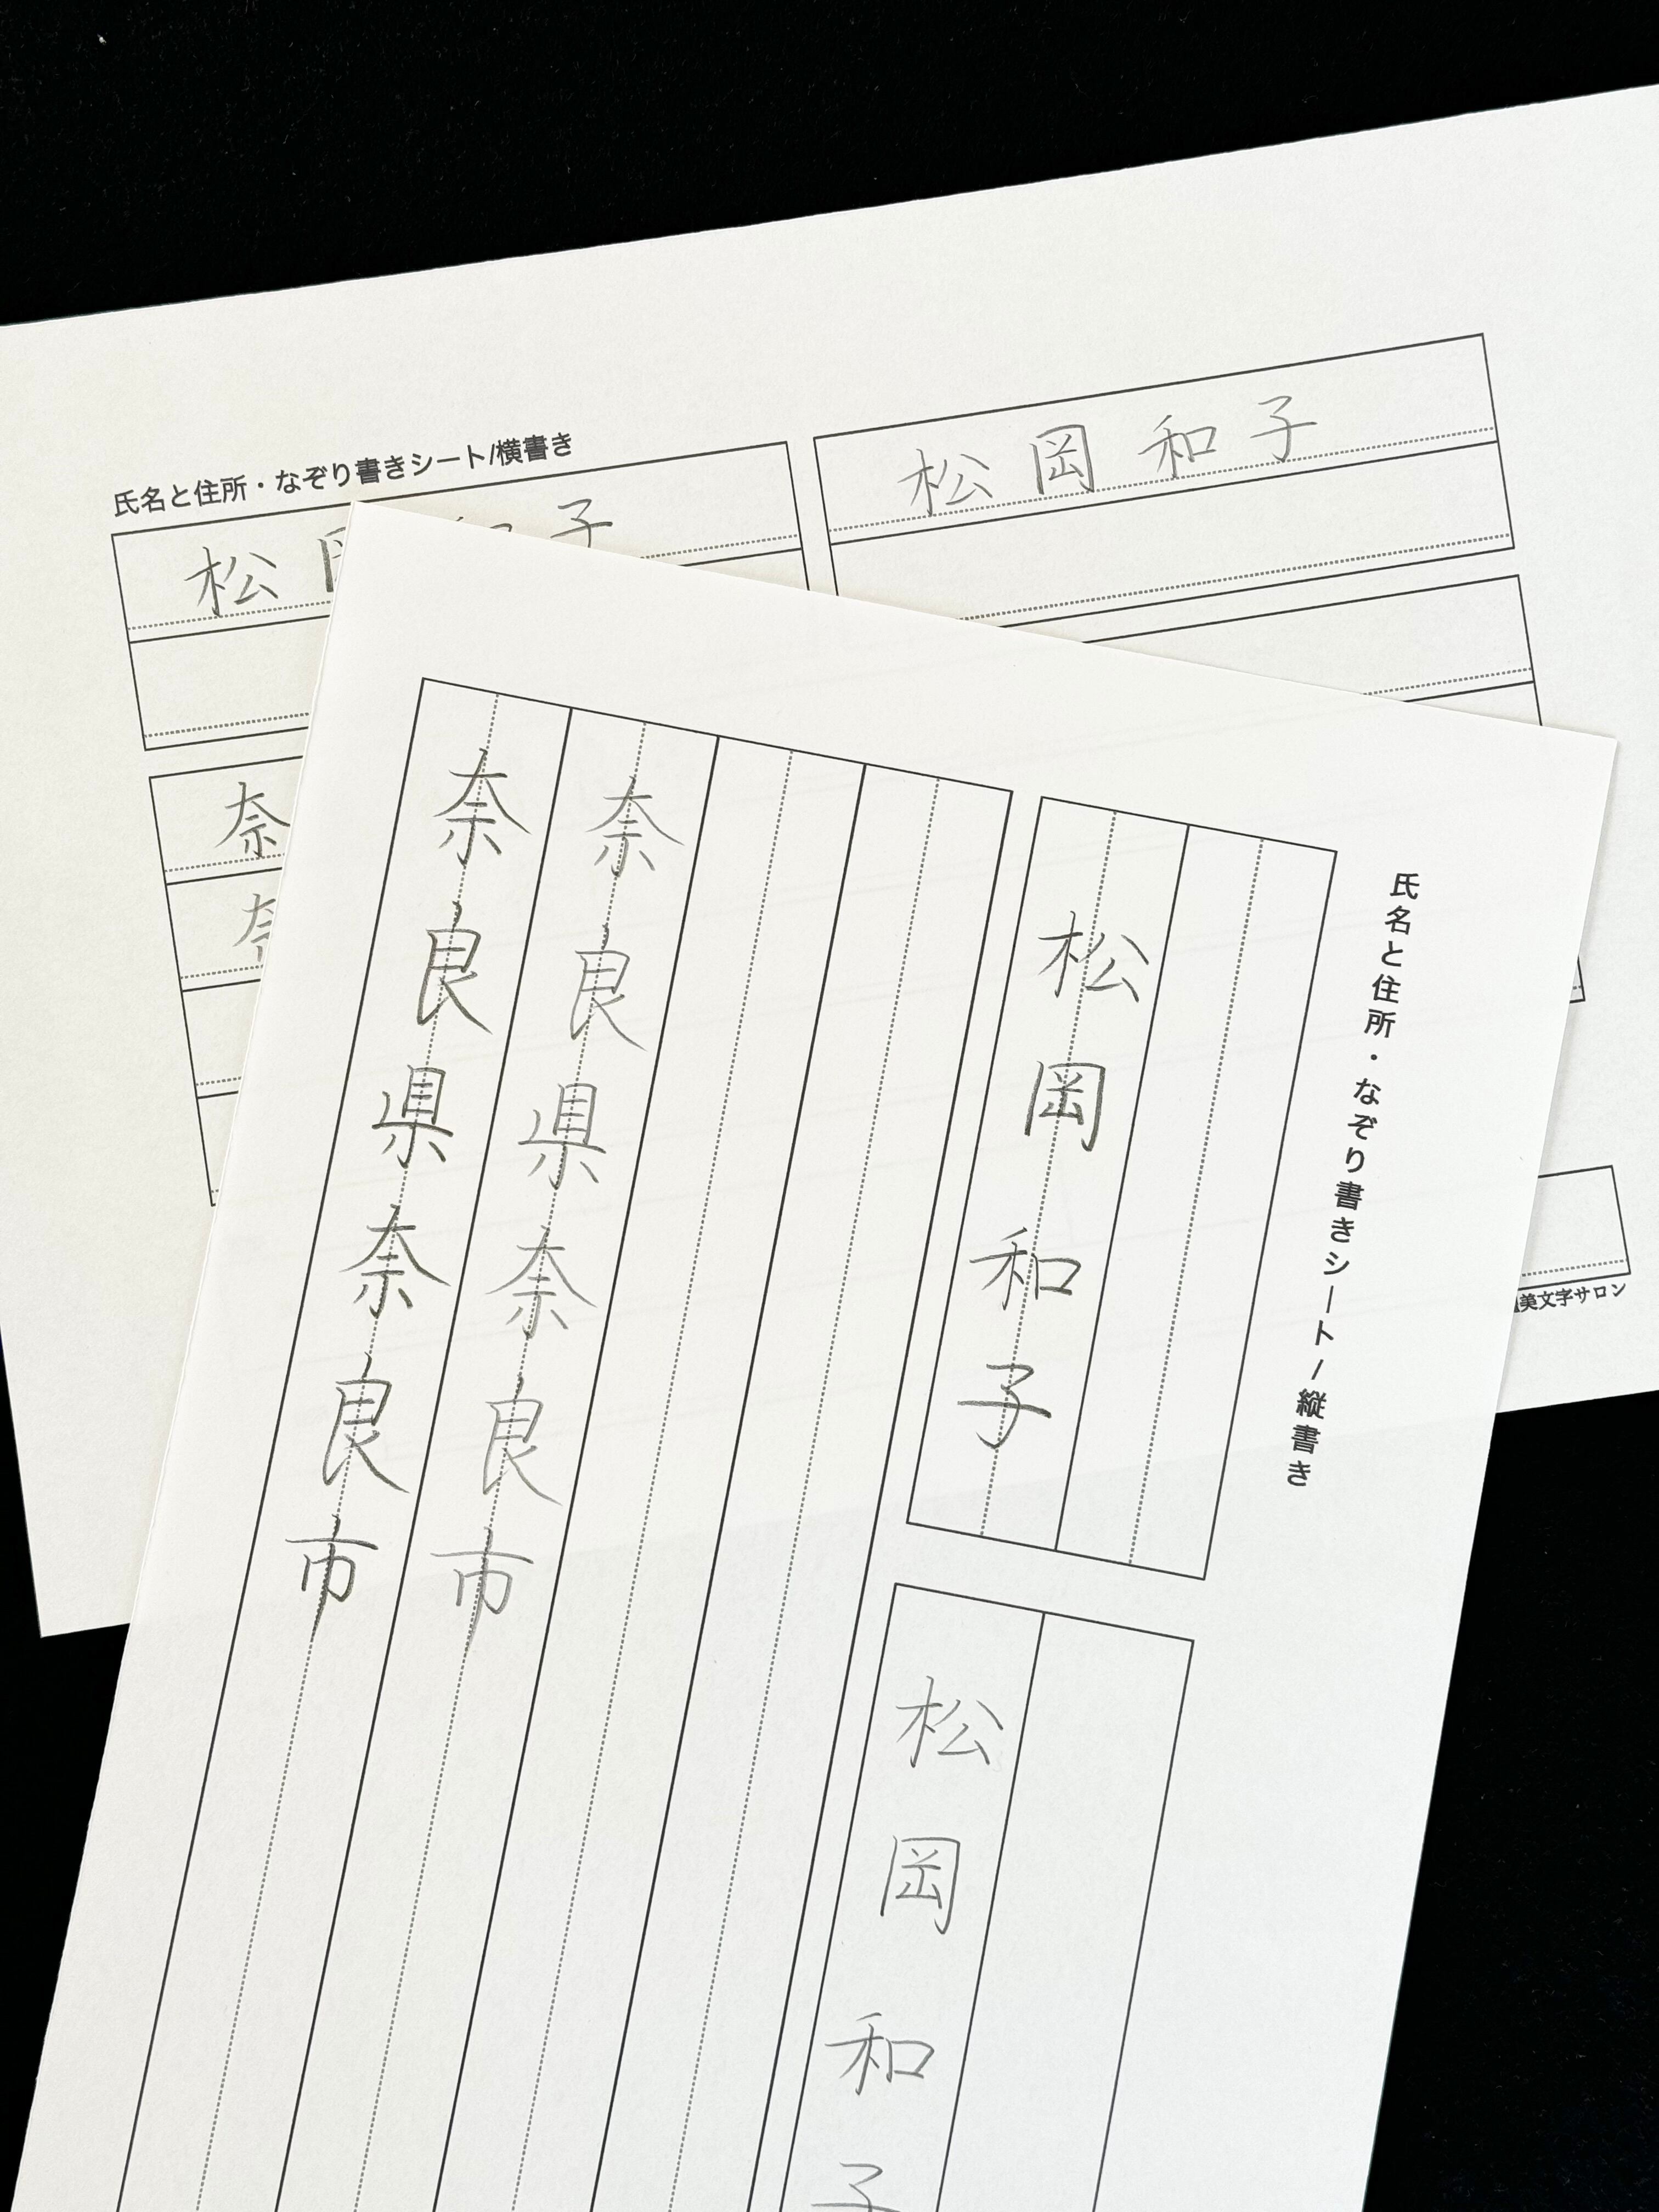 氏名と住所・なぞり書きシート/横書き
松岡和子
松岡和子
奈
奈
美文字サロン
氏名と住所・なぞり書きシート/縦書き
松岡和子
松岡和子
奈良県奈良市
奈良県奈良市